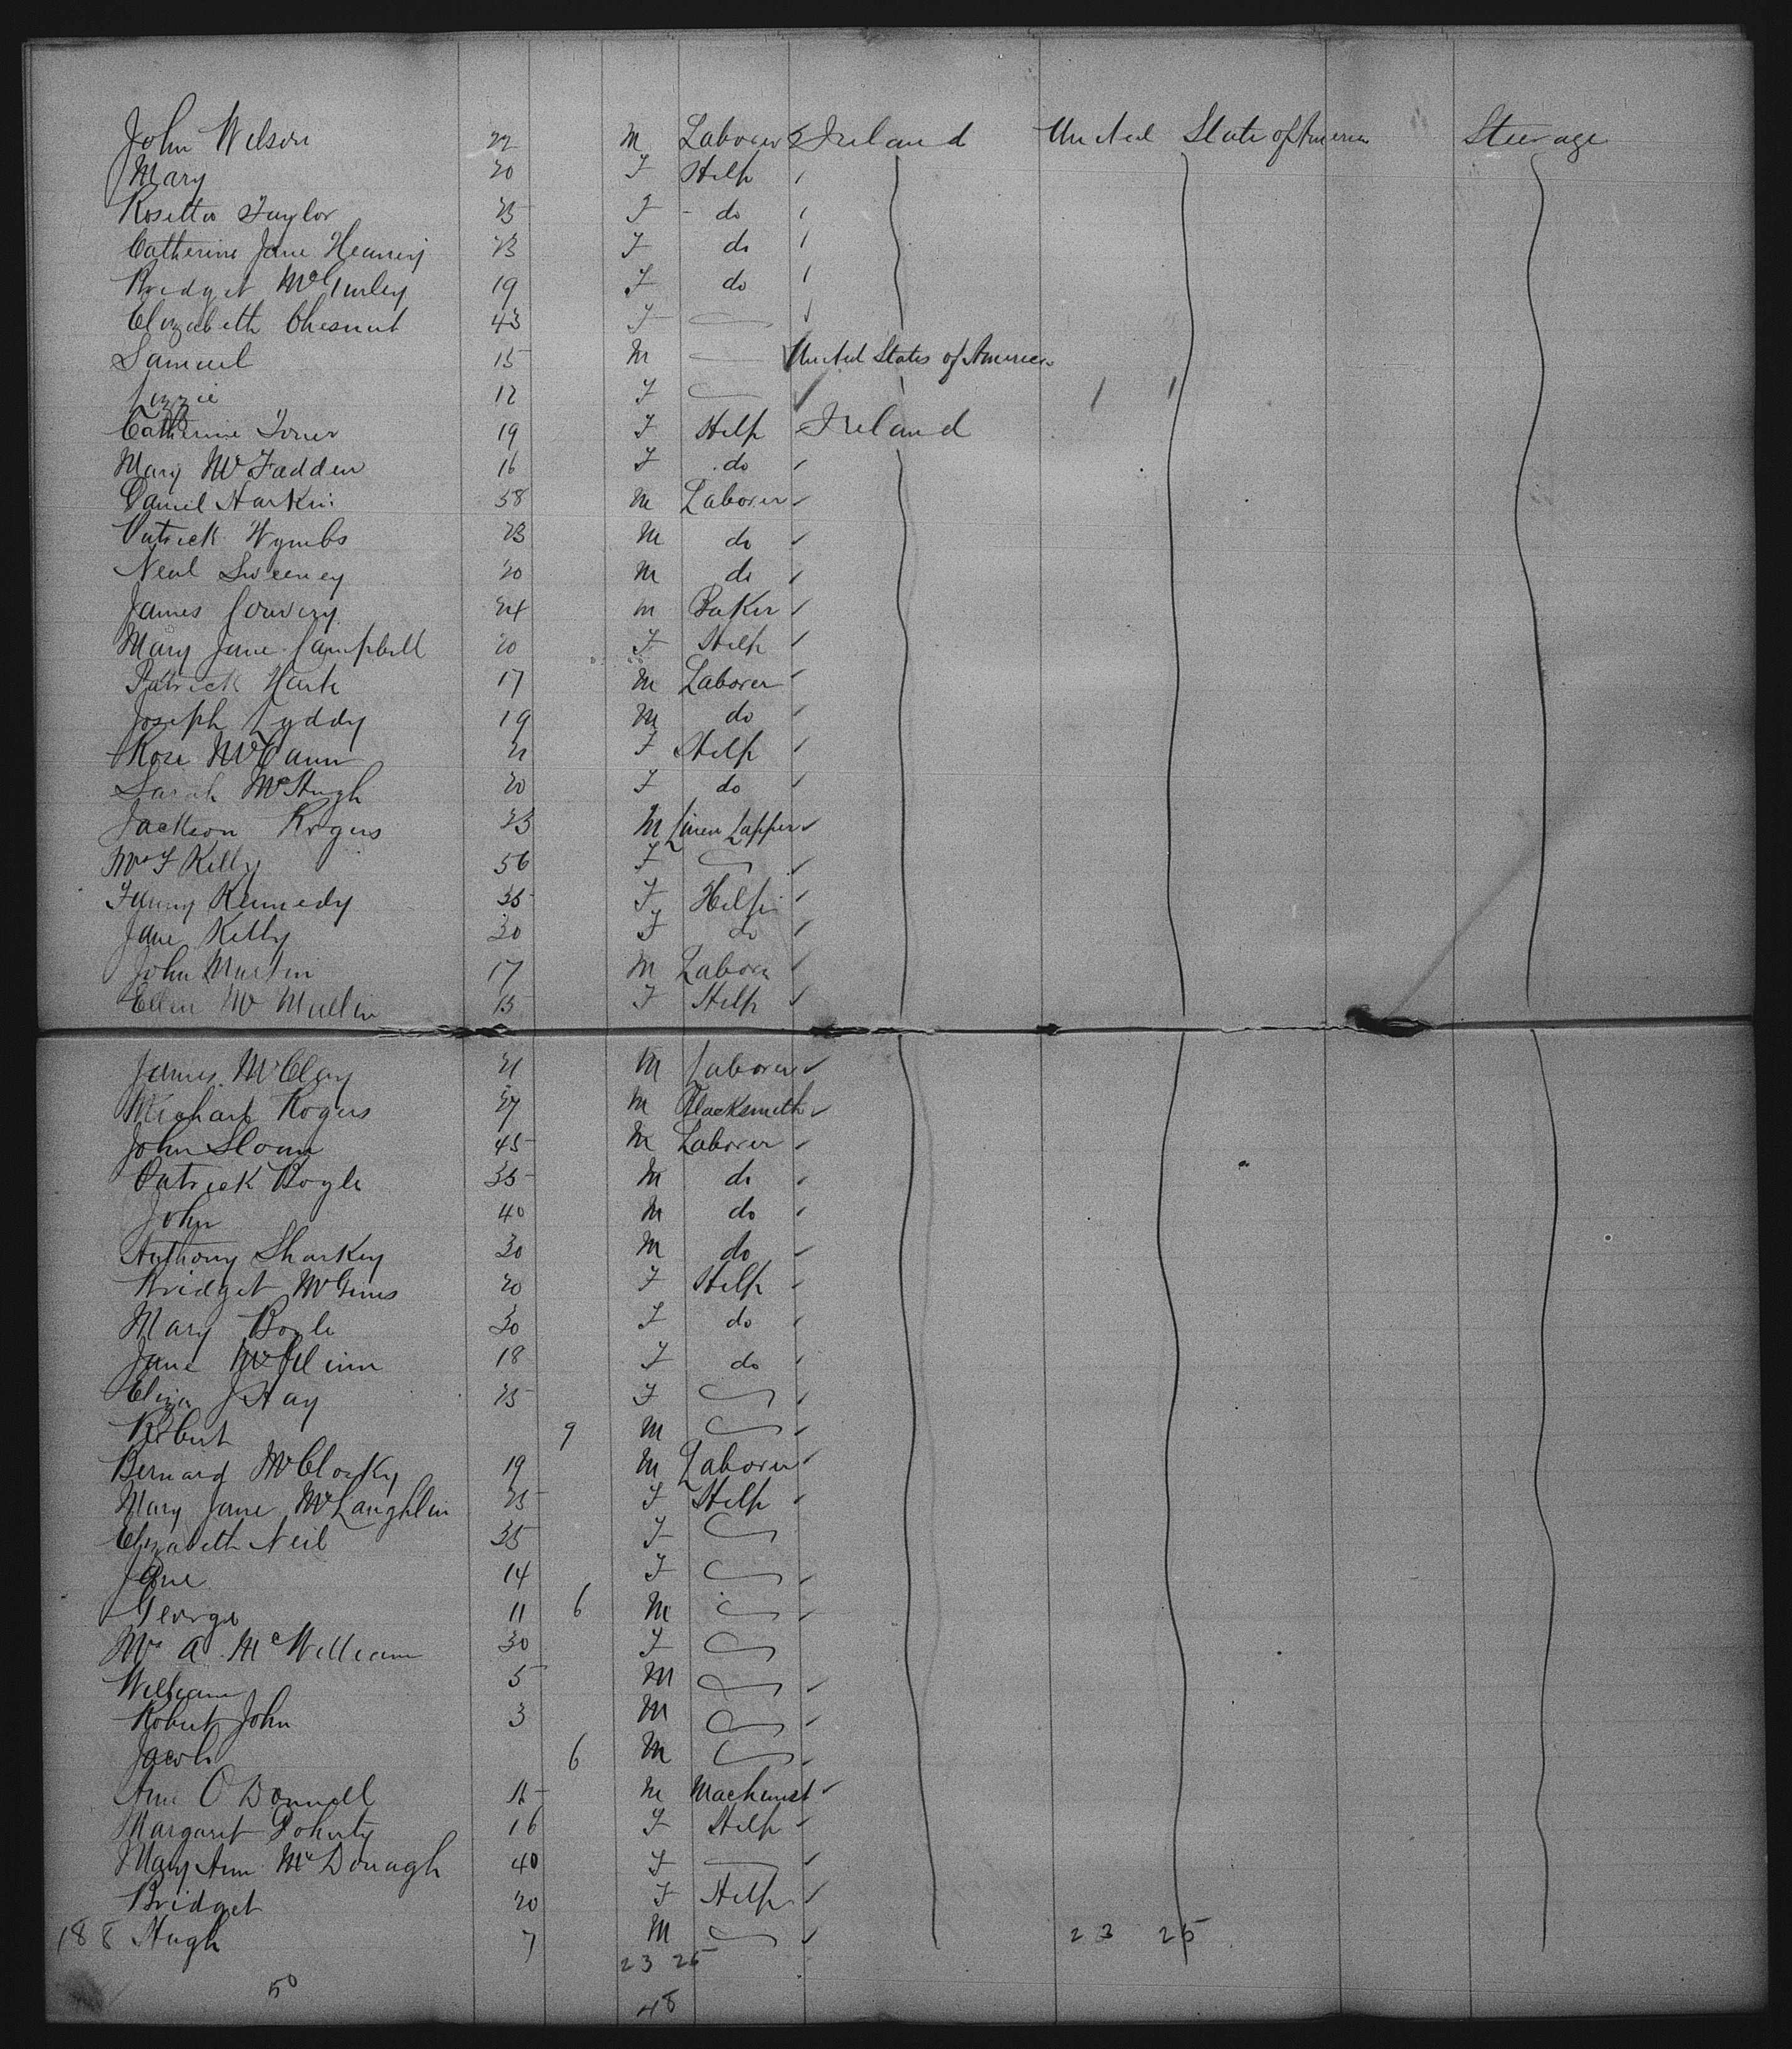 John Wilson 22 M Laborer Ireland United State of America Steerage
Mary 20 F Help
Rosetta Taylor 25 F do
Catherine Jane Heaney 23 F do
Bridget McGinley 19 F do
Elizabeth Chesnut 43 F
Samuel 15 M United States of America
Lizzie 12 F
Catherine Toner 19 F Help Ireland
Mary McFadden 16 F do
Daniel Harkin 58 M Laborer
Patrick Wymbs 23 M do
Neal Sweeney 20 M do
James Lowery 24 M Baker
Mary Jane Campbell 20 F Help
Patrick Harte 17 M Laborer
Joseph Lyddy 19 M do
Rose McCann 21 F Help
Sarah McHugh 20 F do
Jackson Rogers 23 M Linen Lapper
Mrs F Kelly 56 F
Fanny Kennedy 35 F Help
Jane Kelly 30 F do
John Martin 17 M Labore
Ellen McMullin F Help
James McClay 21 M Laborer
Michael Rogers 27 M Blacksmith
John Sloan 45 M Laborer
Patrick Boyle 35 M do
John 40 M do
Anthony Sharkey 30 M do
Bridget McGinis 20 F Help
Mary Boyle 30 F do
Jane 18 F do
Eliza J Hay 25 F
Robert 9 M
Bernard McClosky 19 M Laborer
Mary Jane McLaughlin 25 F Help
Elizabeth Neil 35 F
Jane 14 F
George 11 6 M
Mrs A. McWilliam 30 F
William 5 M
Robert John 3 M
Jacob 6 M
Ann O Donnell M Machinist
Margaret Doherty 16 F Help
Mary Ann McDonagh 40 F
Bridget 20 F Help
188 Hugh 7 M 23 25
23 25
50 48